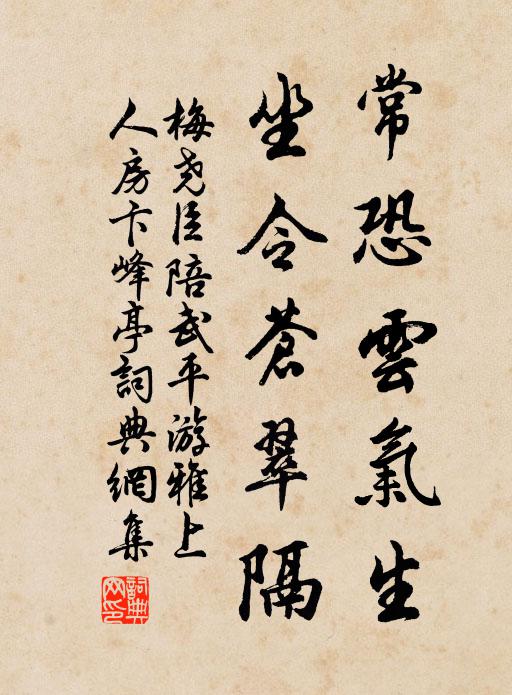 常恐雲氣生
坐令蒼翠隔
梅尧臣陪武平游雅上
人房卞峰亭詞典網集
詞典
网印